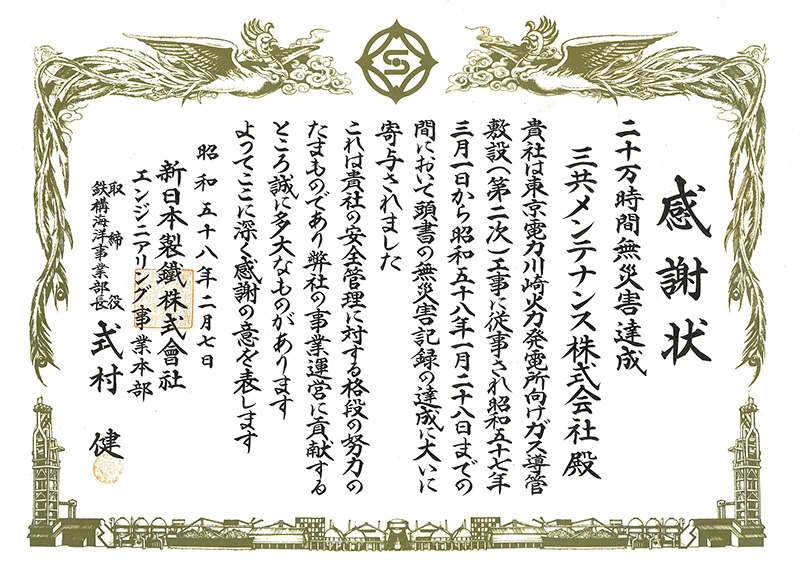 感謝状
二十万時間無災害達成
三共メンテナンス株式会社殿
貴社は東京電力川崎火力発電所向けガス導管
敷設(第二次)工事に従事され昭和五十七年
三月一日から昭和五十八年一月二十八日までの
間において頭書の無災害記録の達成に大いに
寄与されました
これは貴社の安全管理に対する格段の努力の
たまものであり弊社の事業運営に貢献する
ところ誠に多大なものがあります
よってここに深く感謝の意を表します
昭和五十八年二月七日
新日本製鐵株式會社
エンジニアリング事業本部
取締役
鉄構海洋事業部長
式村健